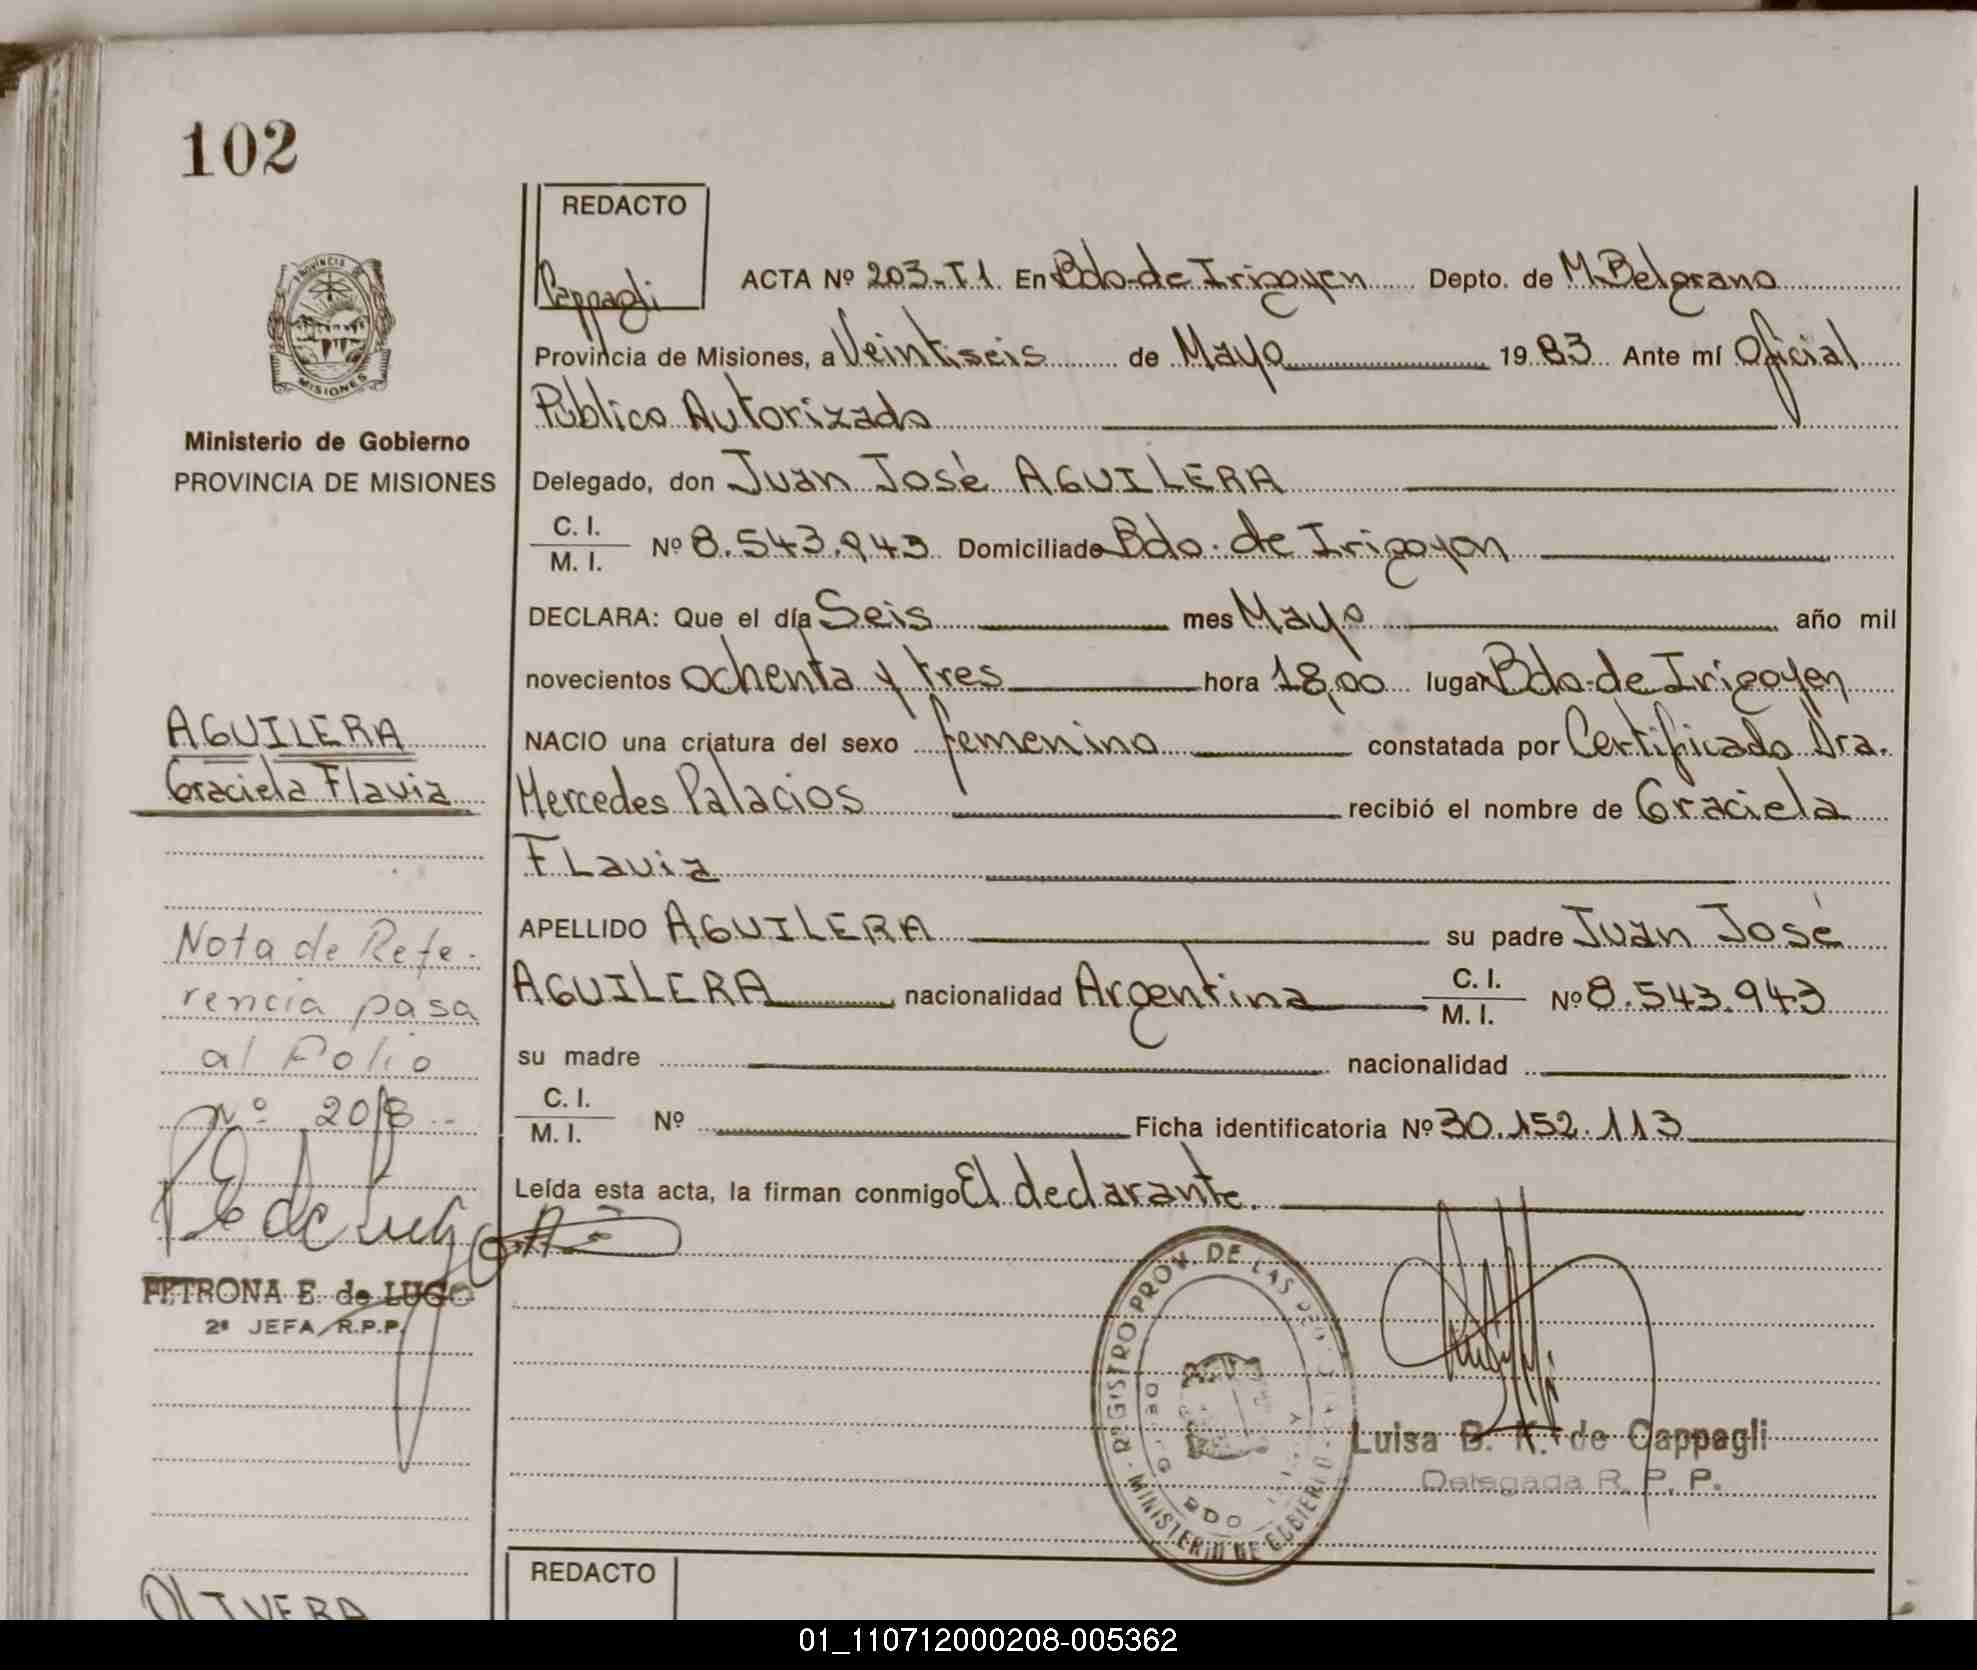 102
REDACTO
Cappagli
PROVINCIA
MISIONES
Ministerio de Gobierno
PROVINCIA DE MISIONES
ACTA Nº 203-T1 En Bdo-de Irigoyen Depto. de M.Belgrano
Provincia de Misiones, a Veintiseis de Mayo 1983 Ante mí Oficial
Público Autorizado
Delegado, don Juan José AGUILERA
C. I.
M. I.
Nº 8.543.943 Domiciliado Bdo. de Irigoyen
DECLARA: Que el día Seis mes Mayo año mil
novecientos ochenta y tres hora 18,00 lugar Bdo-de Irigoyen
AGUILERA
Graciela Flavia
NACIO una criatura del sexo femenino constatada por Certificado Dra.
Mercedes Palacios recibió el nombre de Graciela
FLavia
APELLIDO AGUILERA su padre Juan José
AGUILERA nacionalidad Argentina C. I. M. I. Nº 8.543.943
su madre nacionalidad
C. I.
M. I.
Nº Ficha identificatoria Nº 30.152.113
Leída esta acta, la firman conmigo El declarante.
Nota de Refe-
rencia pasa
al Folio
Nº 208
PETRONA E. de LUGO
2ª JEFA R.P.P.
REGISTRO PROV. DE LAS
MINISTERIO DE GOBIERNO
BDO
Luisa B. K. de Cappagli
Delegada R. P. P.
REDACTO
OLIVERA
01_110712000208-005362